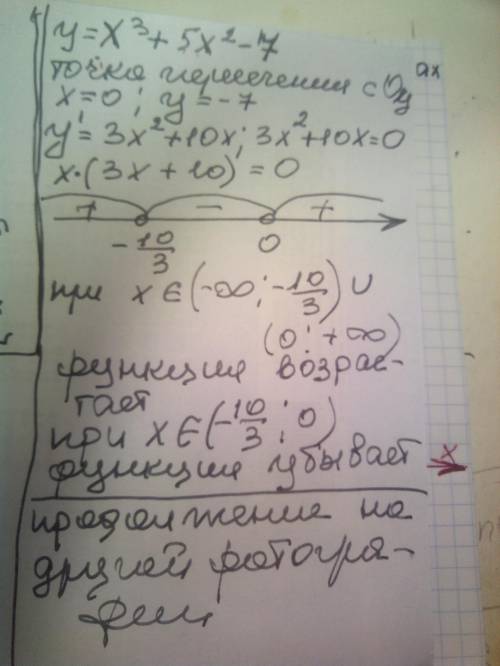 y = x³ + 5x² - 7
точка пересечения с Oy
x = 0 ; y = -7
y' = 3x² + 10x ; 3x² + 10x = 0
x · (3x + 10) = 0
+ - +
-10/3 0
при x ∈ (-∞ ; -10/3) ∪
(0 ; +∞)
функция возрас-
тает
при x ∈ (-10/3 ; 0)
функция убывает
x
продолжение на
другой фотогра-
фии